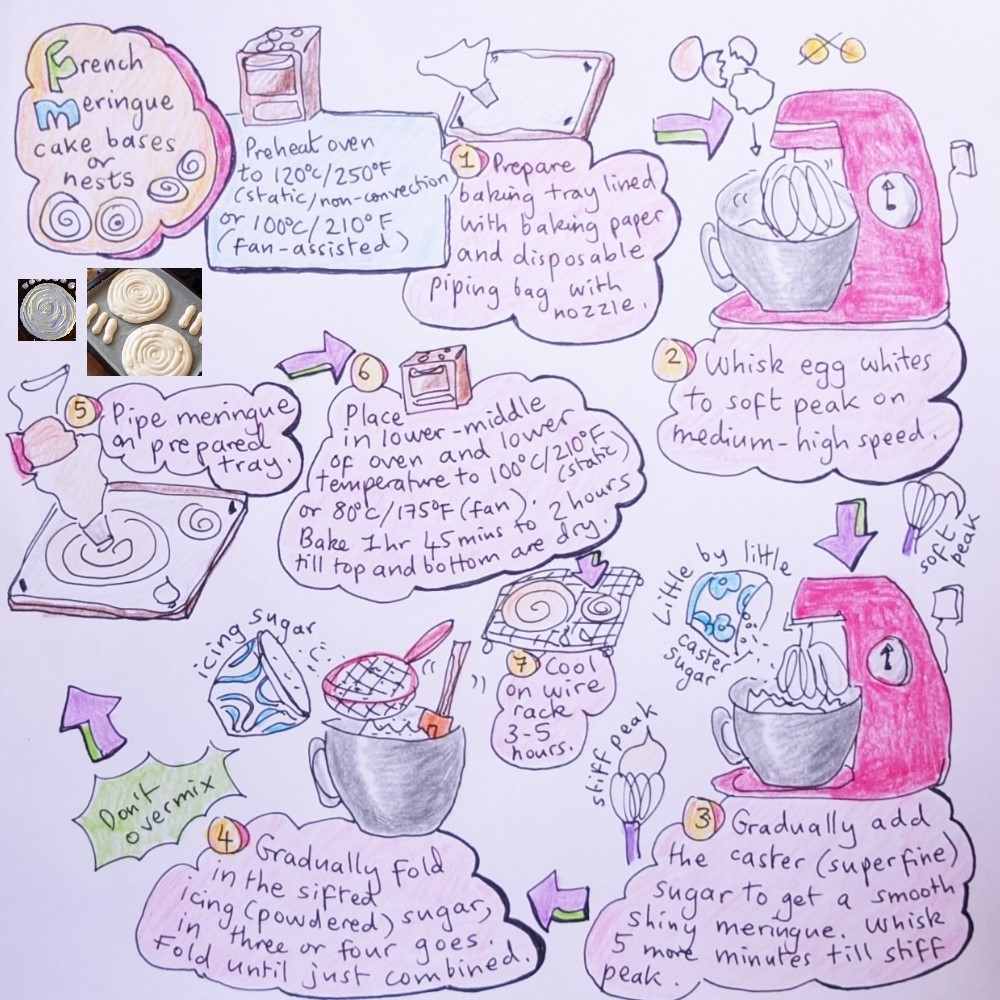 French
Meringue
cake bases
or
nests
Preheat oven
to 120°C/250°F
(static/non-convection
or 100°C/210°F
(fan-assisted)
1 Prepare
baking tray lined
with baking paper
and disposable
piping bag with
nozzle.
2 Whisk egg whites
to soft peak on
medium-high speed.
soft
peak
Little by little
caster
sugar
3 Gradually add
the caster (superfine)
sugar to get a smooth
shiny meringue. Whisk
5 more minutes till stiff
peak.
stiff peak
icing sugar
4 Gradually fold
in the sifted
icing (powdered) sugar,
in three or four goes.
Fold until just combined.
Don't
overmix
5 Pipe meringue
on prepared
tray.
6 Place
in lower-middle
of oven and lower
temperature to 100°C/210°F
(static)
or 80°C/175°F (fan).
Bake 1hr 45mins to 2 hours
till top and bottom are dry.
7 Cool
on wire
rack
3-5
hours.